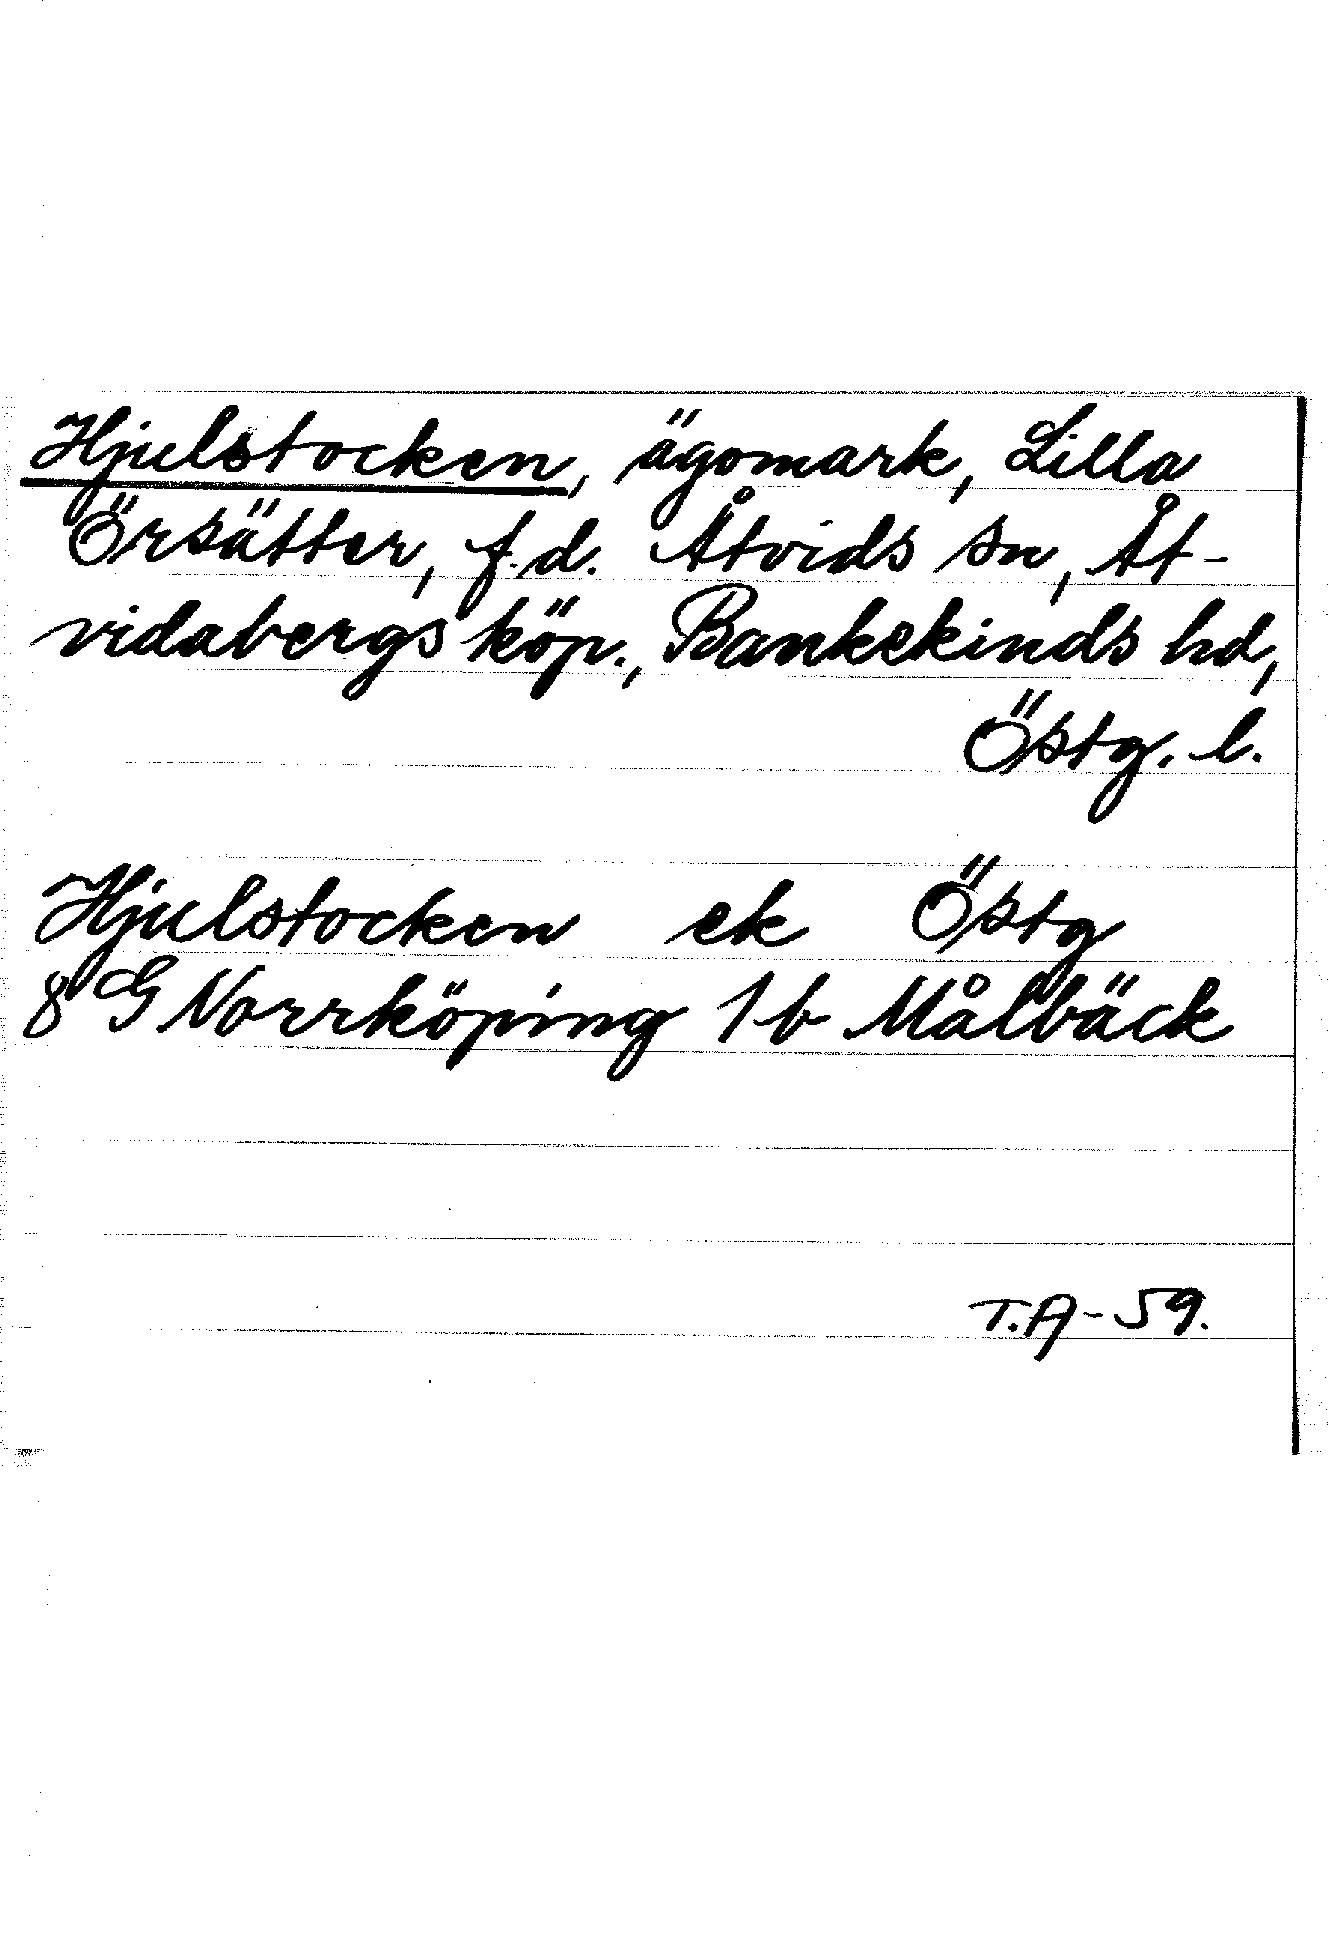 Hjulstocken, ägomark, Lilla
Örsätter, f.d. Åtvids sn, Åt-
vidabergs köp., Bankekinds hd,
Östg. l.
Hjulstocken ek Östg
8 G Norrköping 1 b Målbäck
T.A-59.